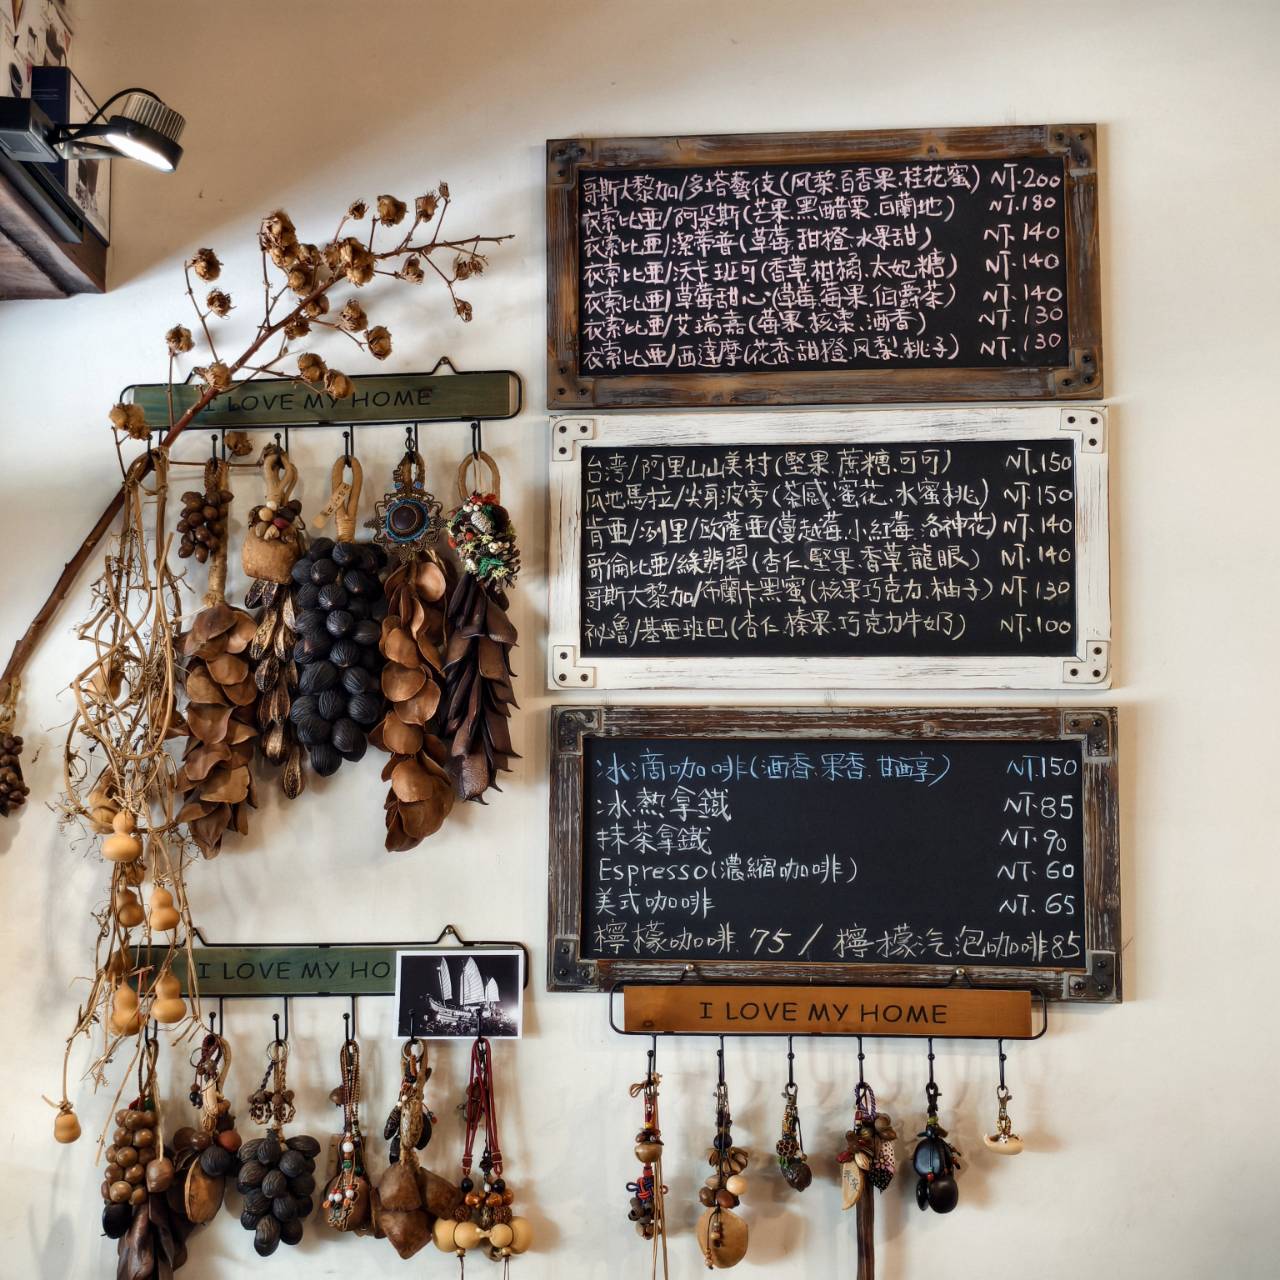 哥斯大黎加/多塔藝伎(风黎.百香果.桂花蜜) NT.200
衣索比亞/阿朵斯(芒果.黑醋栗.白蘭地) NT.180
衣索比亞/潔蒂普(草莓.甜橙.水果甜) NT.140
衣索比亞/沃卡班可(香草.柑橘.太妃糖) NT.140
衣索比亞/草莓甜心(草莓.莓果.伯爵茶) NT.140
衣索比亞/艾瑞嘉(莓果.核棗.酒香) NT.130
衣索比亞/西達摩(花香.甜橙.风梨.桃子) NT.130
I LOVE MY HOME
台灣/阿里山山美村(堅果.蔗糖.可可) NT.150
瓜地馬拉/尖身波旁(茶感.蜜花.水蜜桃) NT.150
肯亞/冽里/歐蓙亞(蔓越莓.小紅莓.洛神花) NT.140
哥倫比亞/綠翡翠(杏仁.堅果.香草.龍眼) NT.140
哥斯大黎加/布蘭卡黑蜜(核果巧克力.柚子) NT.130
祕魯/基亞班巴(杏仁.榛果.巧克力牛奶) NT.100
冰滴咖啡(酒香.果香.甘醇) NT.150
冰.熱拿鐵 NT.85
抹茶拿鐵 NT.90
Espresso(濃縮咖啡) NT.60
美式咖啡 NT.65
檸檬咖啡.75/檸檬汽泡咖啡85
I LOVE MY HO
I LOVE MY HOME